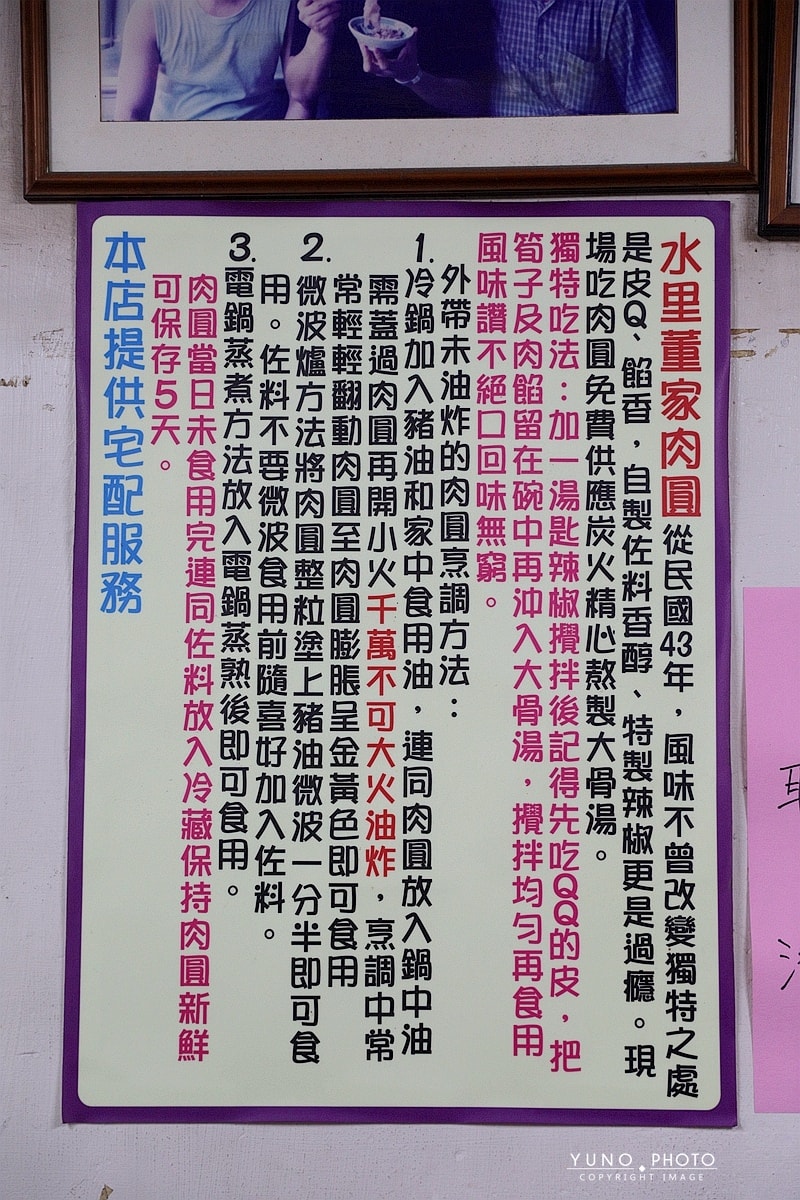 水里董家肉圓從民國43年，風味不曾改變獨特之處
是皮Q、餡香，自製佐料香醇、特製辣椒更是過癮。現
場吃肉圓免費供應炭火精心熬製大骨湯。
獨特吃法：加一湯匙辣椒攪拌後記得先吃QQ的皮，把
筍子及肉餡留在碗中再沖入大骨湯，攪拌均勻再食用
風味讚不絕口回味無窮。
外帶未油炸的肉圓烹調方法：
1.冷鍋加入豬油和家中食用油，連同肉圓放入鍋中油
需蓋過肉圓再開小火千萬不可大火油炸，烹調中常
常輕輕翻動肉圓至肉圓膨脹呈金黃色即可食用
2.微波爐方法將肉圓整粒塗上豬油微波一分半即可食
用。佐料不要微波食用前隨喜好加入佐料。
3.電鍋蒸煮方法放入電鍋蒸熟後即可食用。
肉圓當日未食用完連同佐料放入冷藏保持肉圓新鮮
可保存5天。
本店提供宅配服務
YUNO PHOTO
COPYRIGHT IMAGE